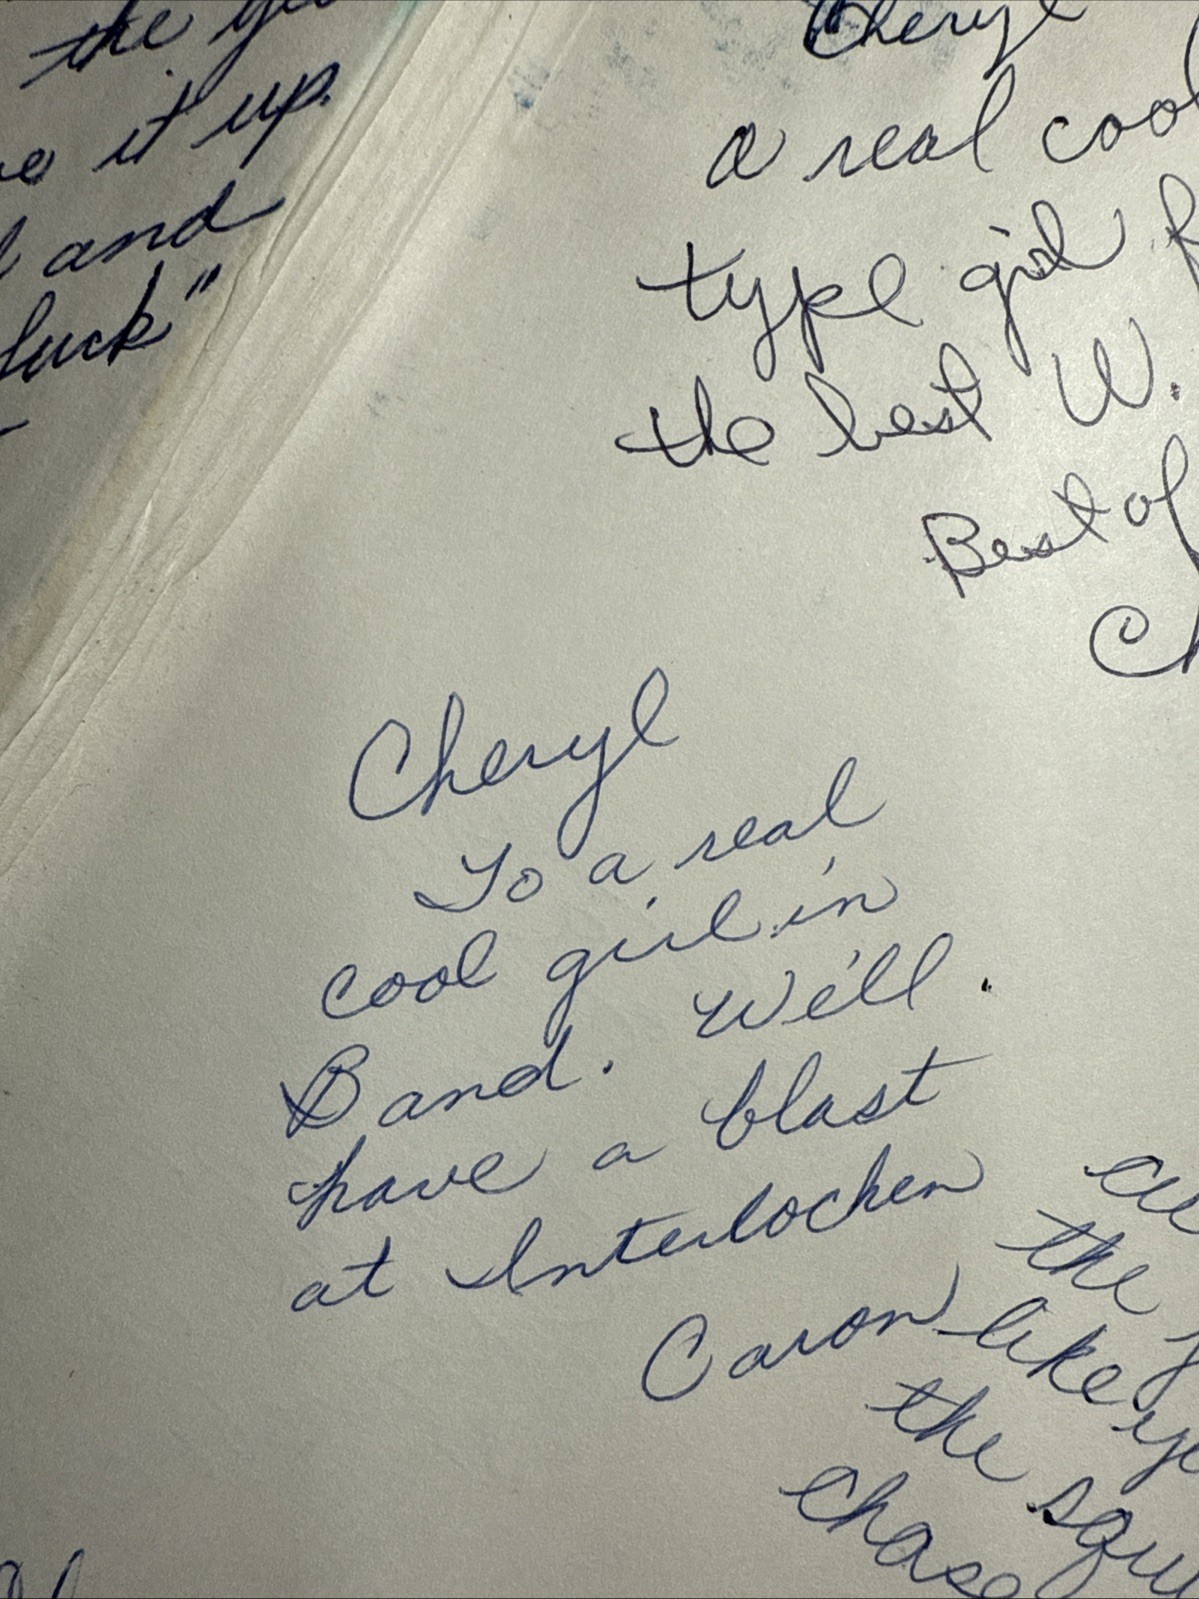 the
it up.
and
luck"
Cheryl
a real cool
type girl
the best W.
Best of
Cheryl
To a real
cool girl in
Band. We'll
have a blast
at Interlochen
Caron
the
like
the
chase